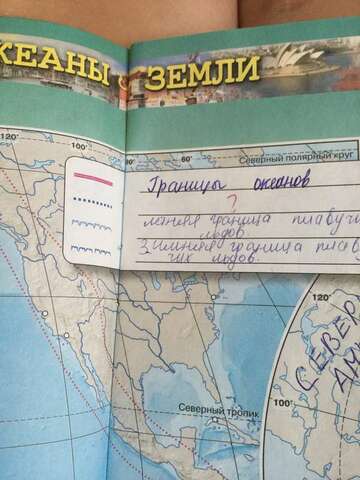 ОКЕАНЫ ЗЕМЛИ
120° 100° 80° 60° Северный полярный круг
Границы океанов
?
летняя граница плавуч
льдов.
Зимняя граница плав
чих льдов.
120°
СЕВЕР
Северный тропик
100°